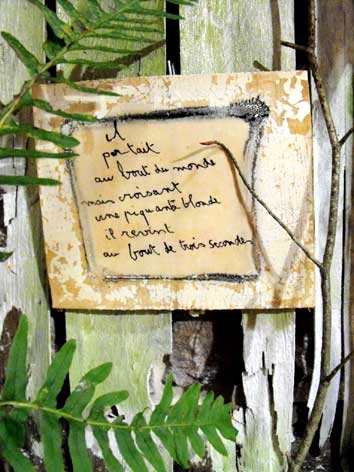 il
portait
au bout du monde
mais croisant
une piquante blonde
il revint
au bout de trois secondes